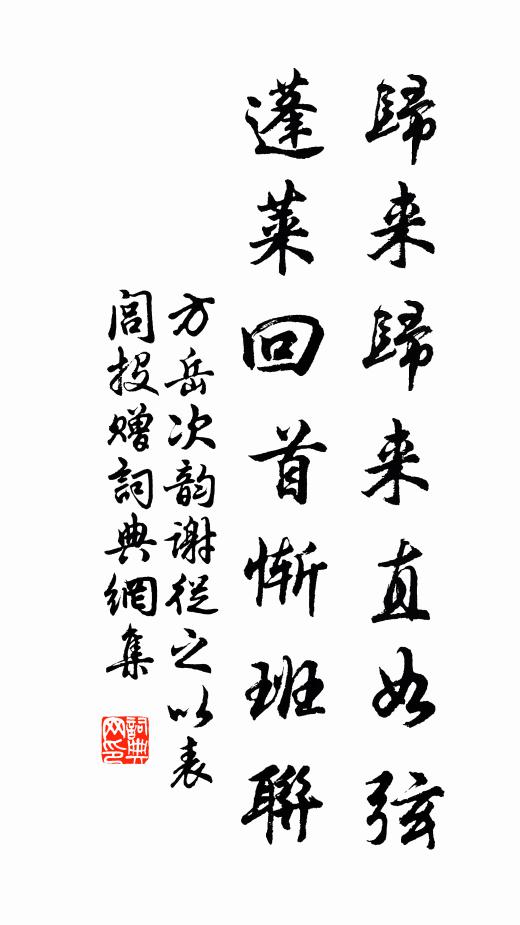 歸来歸来直如弦
蓬莱回首慚班聯
方岳次韵謝從之以表
閭投贈詞典網集
詞典网印